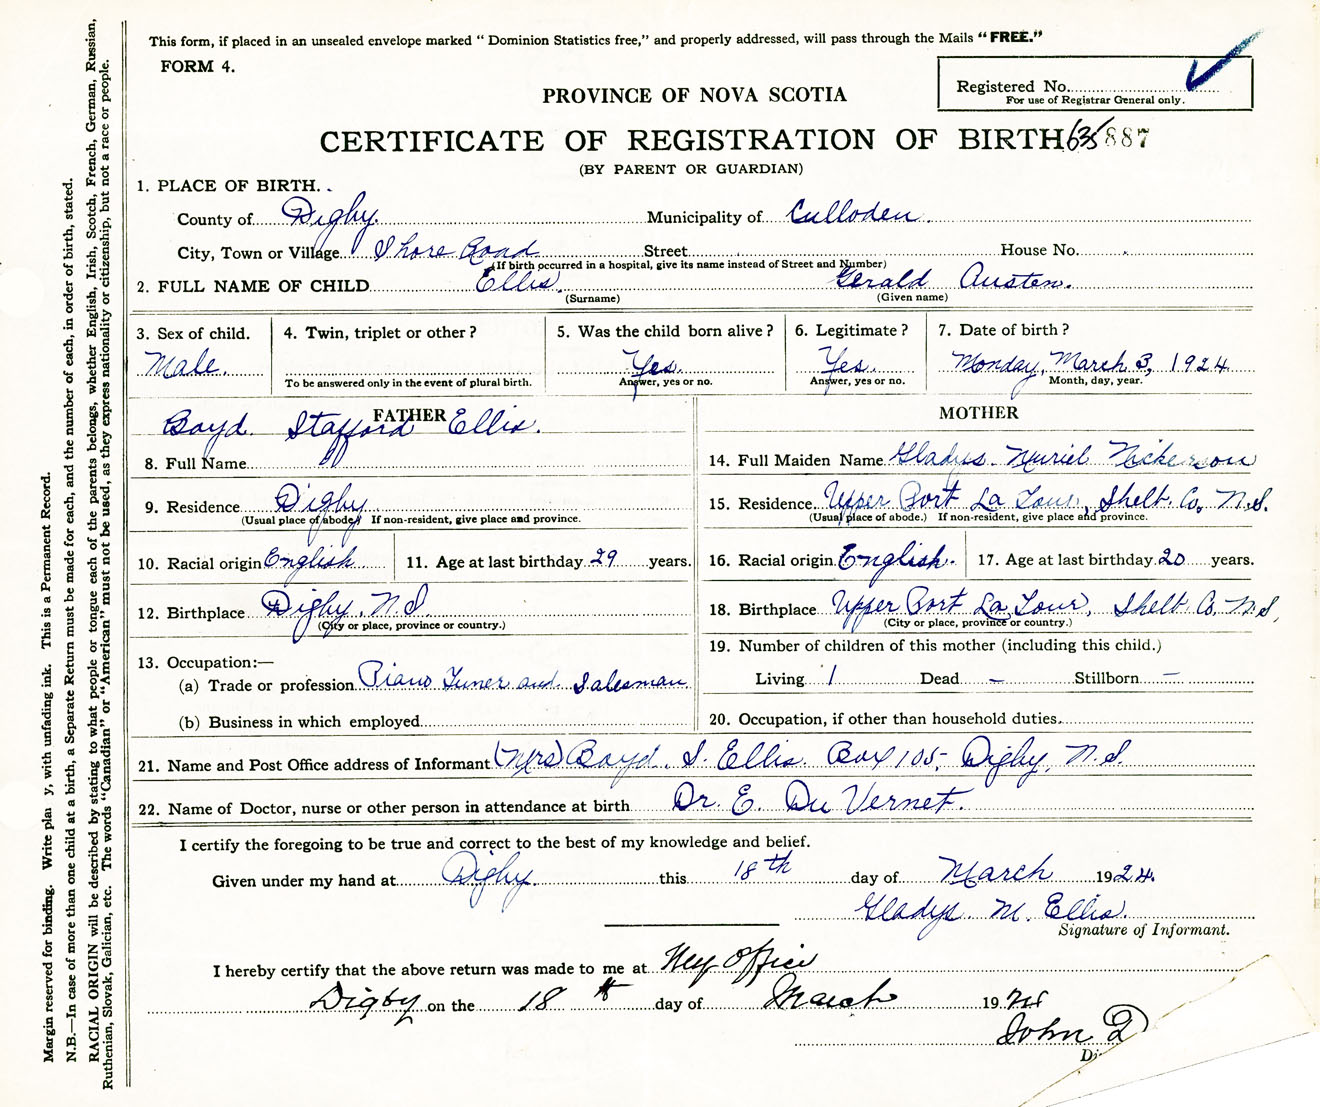 This form, if placed in an unsealed envelope marked " Dominion Statistics free," and properly addressed, will pass through the Mails "FREE."
FORM 4.
Registered No.
For use of Registrar General only.
PROVINCE OF NOVA SCOTIA
CERTIFICATE OF REGISTRATION OF BIRTH 635887
(BY PARENT OR GUARDIAN)
1. PLACE OF BIRTH.
County of Digby. Municipality of Culloden.
City, Town or Village Shore Road Street House No.
(If birth occurred in a hospital, give its name instead of Street and Number)
2. FULL NAME OF CHILD Ellis. Gerald Austen.
(Surname) (Given name)
3. Sex of child. 4. Twin, triplet or other? 5. Was the child born alive? 6. Legitimate? 7. Date of birth?
Male. Yes. Yes. Monday, March 3, 1924
To be answered only in the event of plural birth. Answer, yes or no. Answer, yes or no. Month, day, year.
FATHER
Boyd. Stafford Ellis.
8. Full Name
9. Residence Digby
(Usual place of abode.) If non-resident, give place and province.
10. Racial origin English 11. Age at last birthday 29 years.
12. Birthplace Digby, N.S
(City or place, province or country.)
13. Occupation:—
(a) Trade or profession Piano Tuner and Salesman
(b) Business in which employed
MOTHER
14. Full Maiden Name Gladys. Muriel Nickerson
15. Residence Upper Port La Tour, Shelb. Co, N.S.
(Usual place of abode.) If non-resident, give place and province.
16. Racial origin English. 17. Age at last birthday 20 years.
18. Birthplace Upper Port La Tour, Shelb. Co, N.S,
(City or place, province or country.)
19. Number of children of this mother (including this child.)
Living 1 Dead – Stillborn –
20. Occupation, if other than household duties.
21. Name and Post Office address of Informant (Mrs) Boyd. S. Ellis. Box 105, Digby, N.S.
22. Name of Doctor, nurse or other person in attendance at birth Dr. E. Du Vernet.
I certify the foregoing to be true and correct to the best of my knowledge and belief.
Given under my hand at Digby. this 18th day of March 1924.
Gladys. M. Ellis.
Signature of Informant.
I hereby certify that the above return was made to me at My Office
Digby on the 18th day of March 1924
John D
Di
Margin reserved for binding. Write plai y, with unfading ink. This is a Permanent Record.
N.B.—In case of more than one child at a birth, a Separate Return must be made for each, and the number of each, in order of birth, stated.
RACIAL ORIGIN will be described by stating to what people or tongue each of the parents belongs, whether English, Irish, Scotch, French, German, Russian,
Ruthenian, Slovak, Galician, etc. The words "Canadian" or "American" must not be used, as they express nationality or citizenship, but not a race or people.